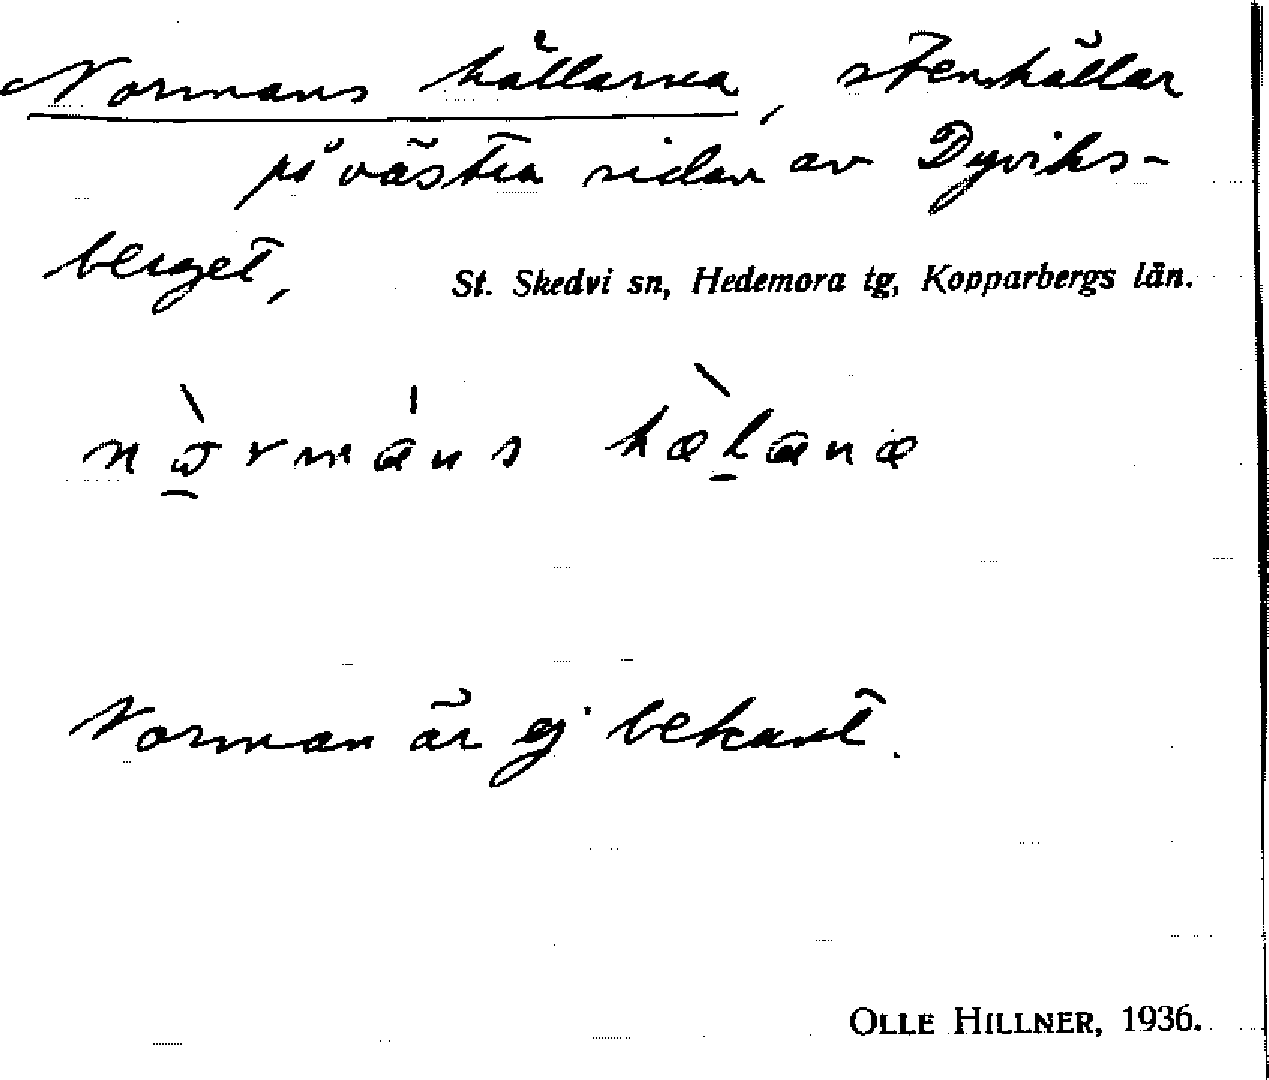 Normans hällarna, stenhällar
på västra sidan av Dyviks-
berget,
St. Skedvi sn, Hedemora tg, Kopparbergs län.
Norman är ej bekant.
OLLE HILLNER, 1936.